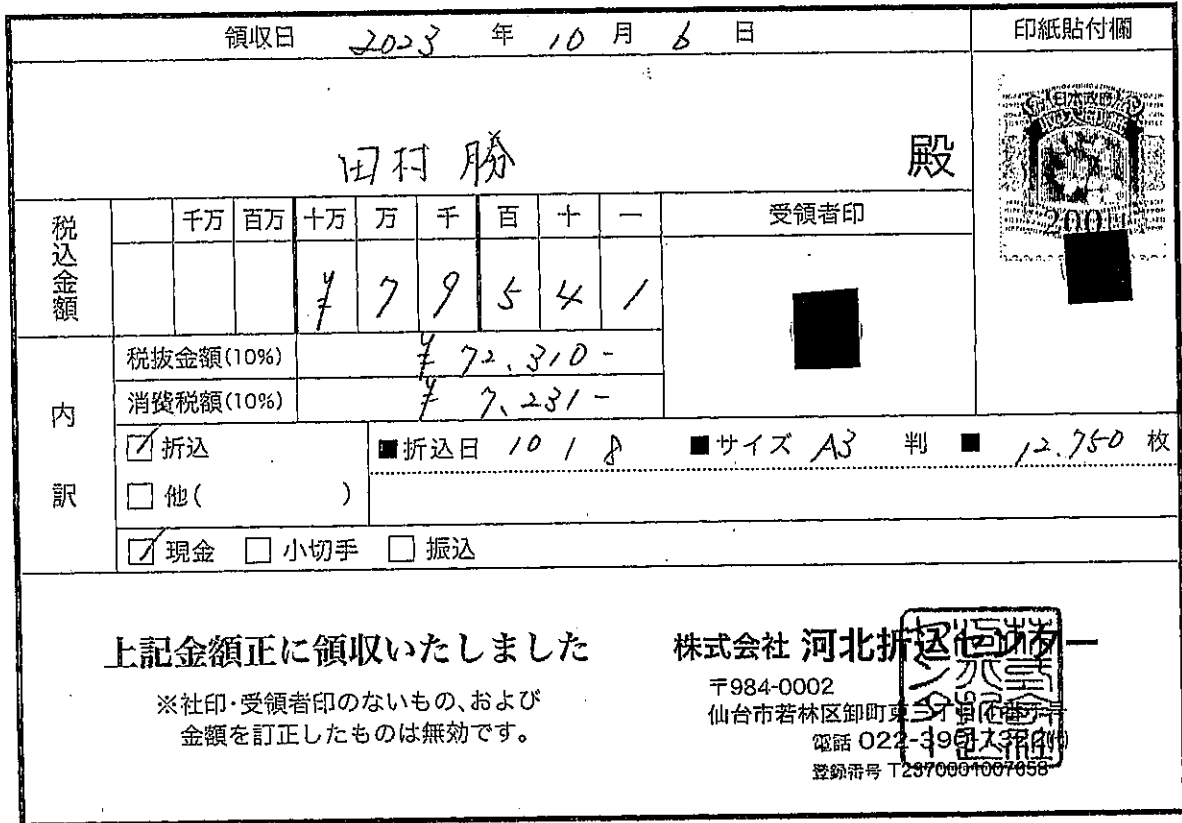 領収日 2023 年 10 月 6 日
印紙貼付欄
日本政府
200円
田村 勝 殿
税込金額
千万 百万 十万 万 千 百 十 一
¥ 7 9 5 4 1
受領者印
内訳
税抜金額(10%) ¥ 72,310-
消費税額(10%) ¥ 7,231-
☑ 折込 ■折込日 10 / 8 ■サイズ A3 判 ■ 12,750 枚
☐ 他( )
☑ 現金 ☐ 小切手 ☐ 振込
上記金額正に領収いたしました
※社印・受領者印のないもの、および
金額を訂正したものは無効です。
株式会社 河北折込センター
〒984-0002
仙台市若林区卸町東三丁目
電話 022-390-
登録番号 T2370001007658